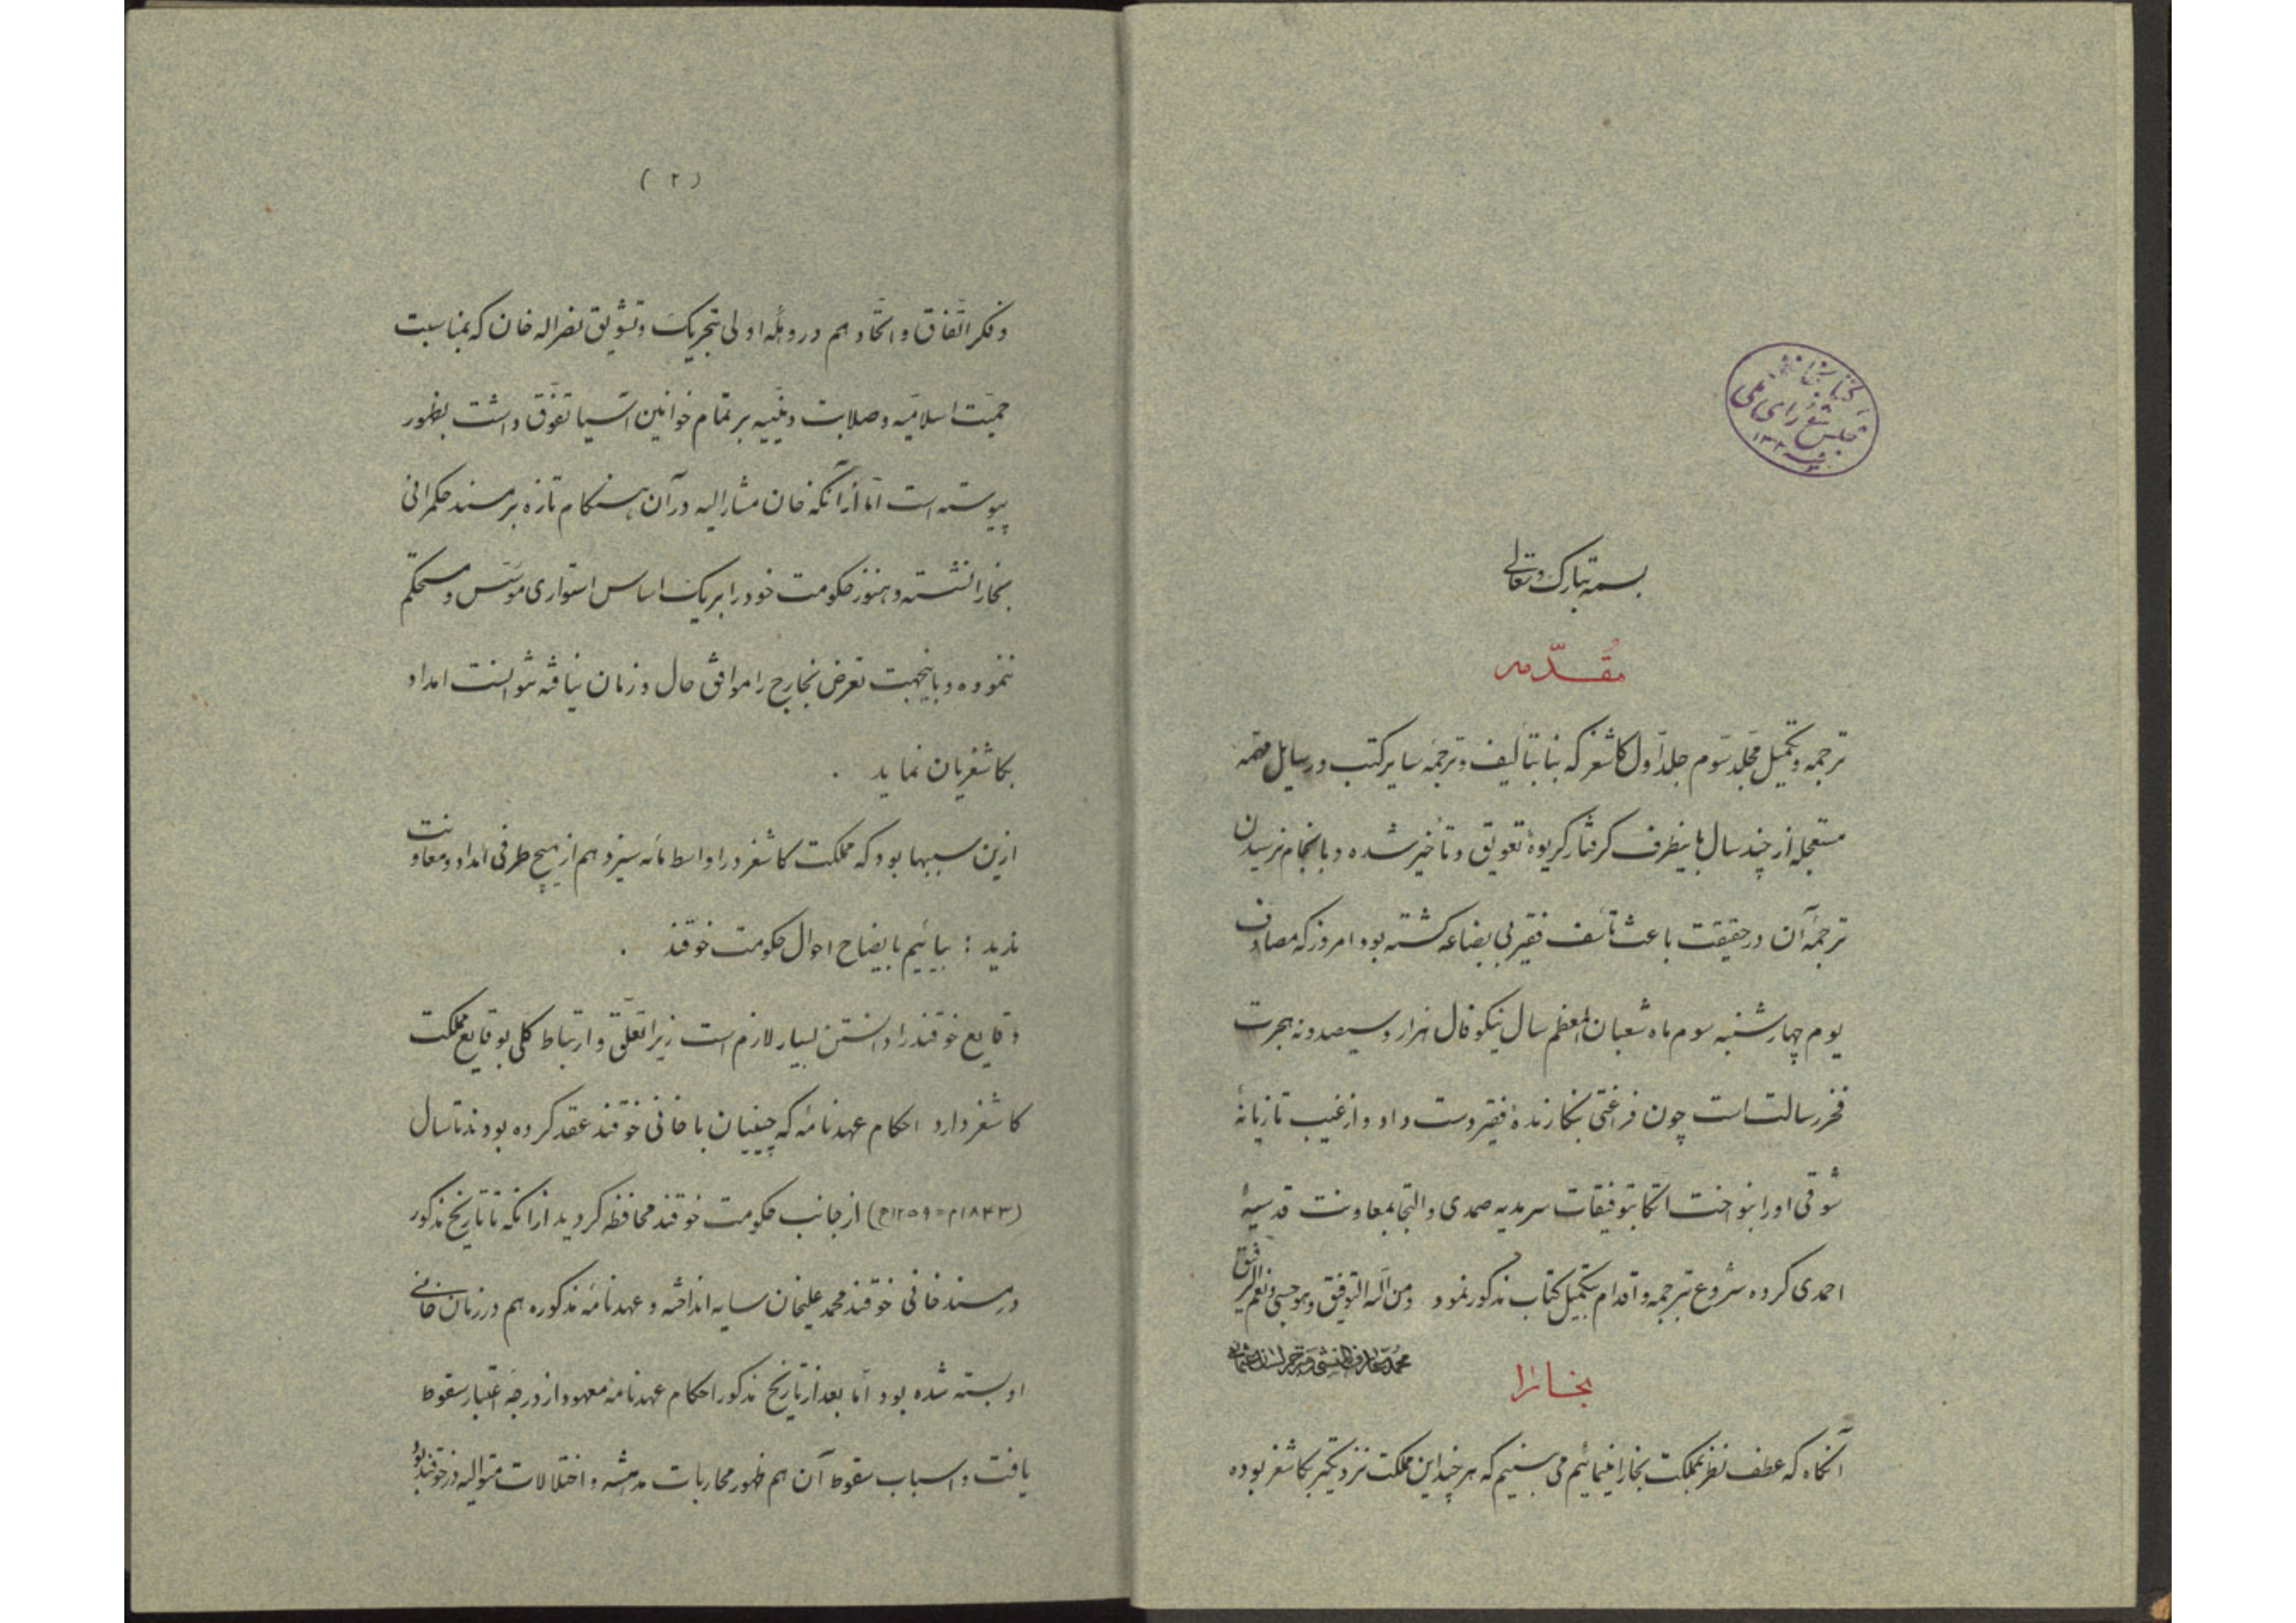 کتابخانه
مجلس شورای ملی
۱۳۰۲
بسمه تبارک وتعالی
مُقدّمه
ترجمه وتکمیل مجلد سوم جلد اول کاشغر که بنا بتألیف وترجمه سایر کتب ورسایل مهمه
مستعجله از چند سال باینطرف گرفتار گریوهٔ تعویق وتأخیر شده وبانجام نرسیدن
ترجمهٔ آن درحقیقت باعث تأسف فقیر بی بضاعه گشته بود امروز که مصادف
یوم چهارشنبه سوم ماه شعبان المعظم سال نیکو فال هزار وسیصدونه هجرت
فخر رسالت است چون فراغتی بنگارندهٔ فقیر دست داد واز غیب تازیانهٔ
شوقی اورا بنواخت اتکا بتوفیقات سرمدیه صمدی والتجا بمعاونت قدسیهٔ
احمدی کرده شروع بترجمه واقدام بتکمیل کتاب مذکور نمود ومن الله التوفیق وهو حسبی ونعم الرفیق
بخارا
آنگاه که عطف نظر بمملکت بخارا مینمائیم می بینیم که هرچند این مملکت نزدیکتر بکاشغر بوده
(۲)
وفکر اتّفاق واتّحاد هم در وهلهٔ اولی بتحریک وتشویق نصراله خان که بمناسبت
حمیّت اسلامیّه وصلابت دینیّه بر تمام خوانین آسیا تفوّق داشت بظهور
پیوسته است امّا ازآنکه خان مشارالیه درآن هنگام تازه بر مسند حکمرانی
بخارا نشسته وهنوز حکومت خود را بر یک اساس استواری مؤسّس ومستحکم
ننموده وباینجهت تعرض بخارج را موافق حال وزمان نیافته نتوانست امداد
بکاشغریان نماید .
ازین سببها بود که مملکت کاشغر در اواسط مائه سیزدهم از هیچ طرفی امداد ومعاونت
ندید : بیائیم بایضاح احوال حکومت خوقند .
وقایع خوقند را دانستن بسیار لازم است زیرا تعلّق وارتباط کلی بوقایع مملکت
کاشغر دارد احکام عهدنامهٔ که چینیان با خانی خوقند عقد کرده بودند تا سال
(۱۸۴۳م=۱۲۵۹ﻫ) از جانب حکومت خوقند محافظه گردید ازانکه تا تاریخ مذکور
در مسند خانی خوقند محمد علیخان سایه انداخته وعهدنامهٔ مذکوره هم در زمان خانی
او بسته شده بود امّا بعد از تاریخ مذکور احکام عهدنامهٔ معهود از درجهٔ اعتبار سقوط
یافت واسباب سقوط آن هم ظهور محاربات مدهشه واختلالات متوالیه در خوقند بود